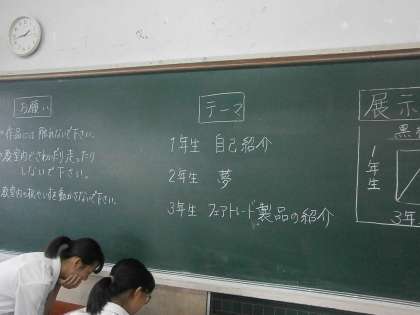 お願い
作品には触れないで下さい。
教室内でさわいだり走ったり
しないで下さい。
教室内の机やいすを動かさないで下さい。
テーマ
1年生 自己紹介
2年生 夢
3年生 フェアトレード製品の紹介
展示
黒
1年生
3年